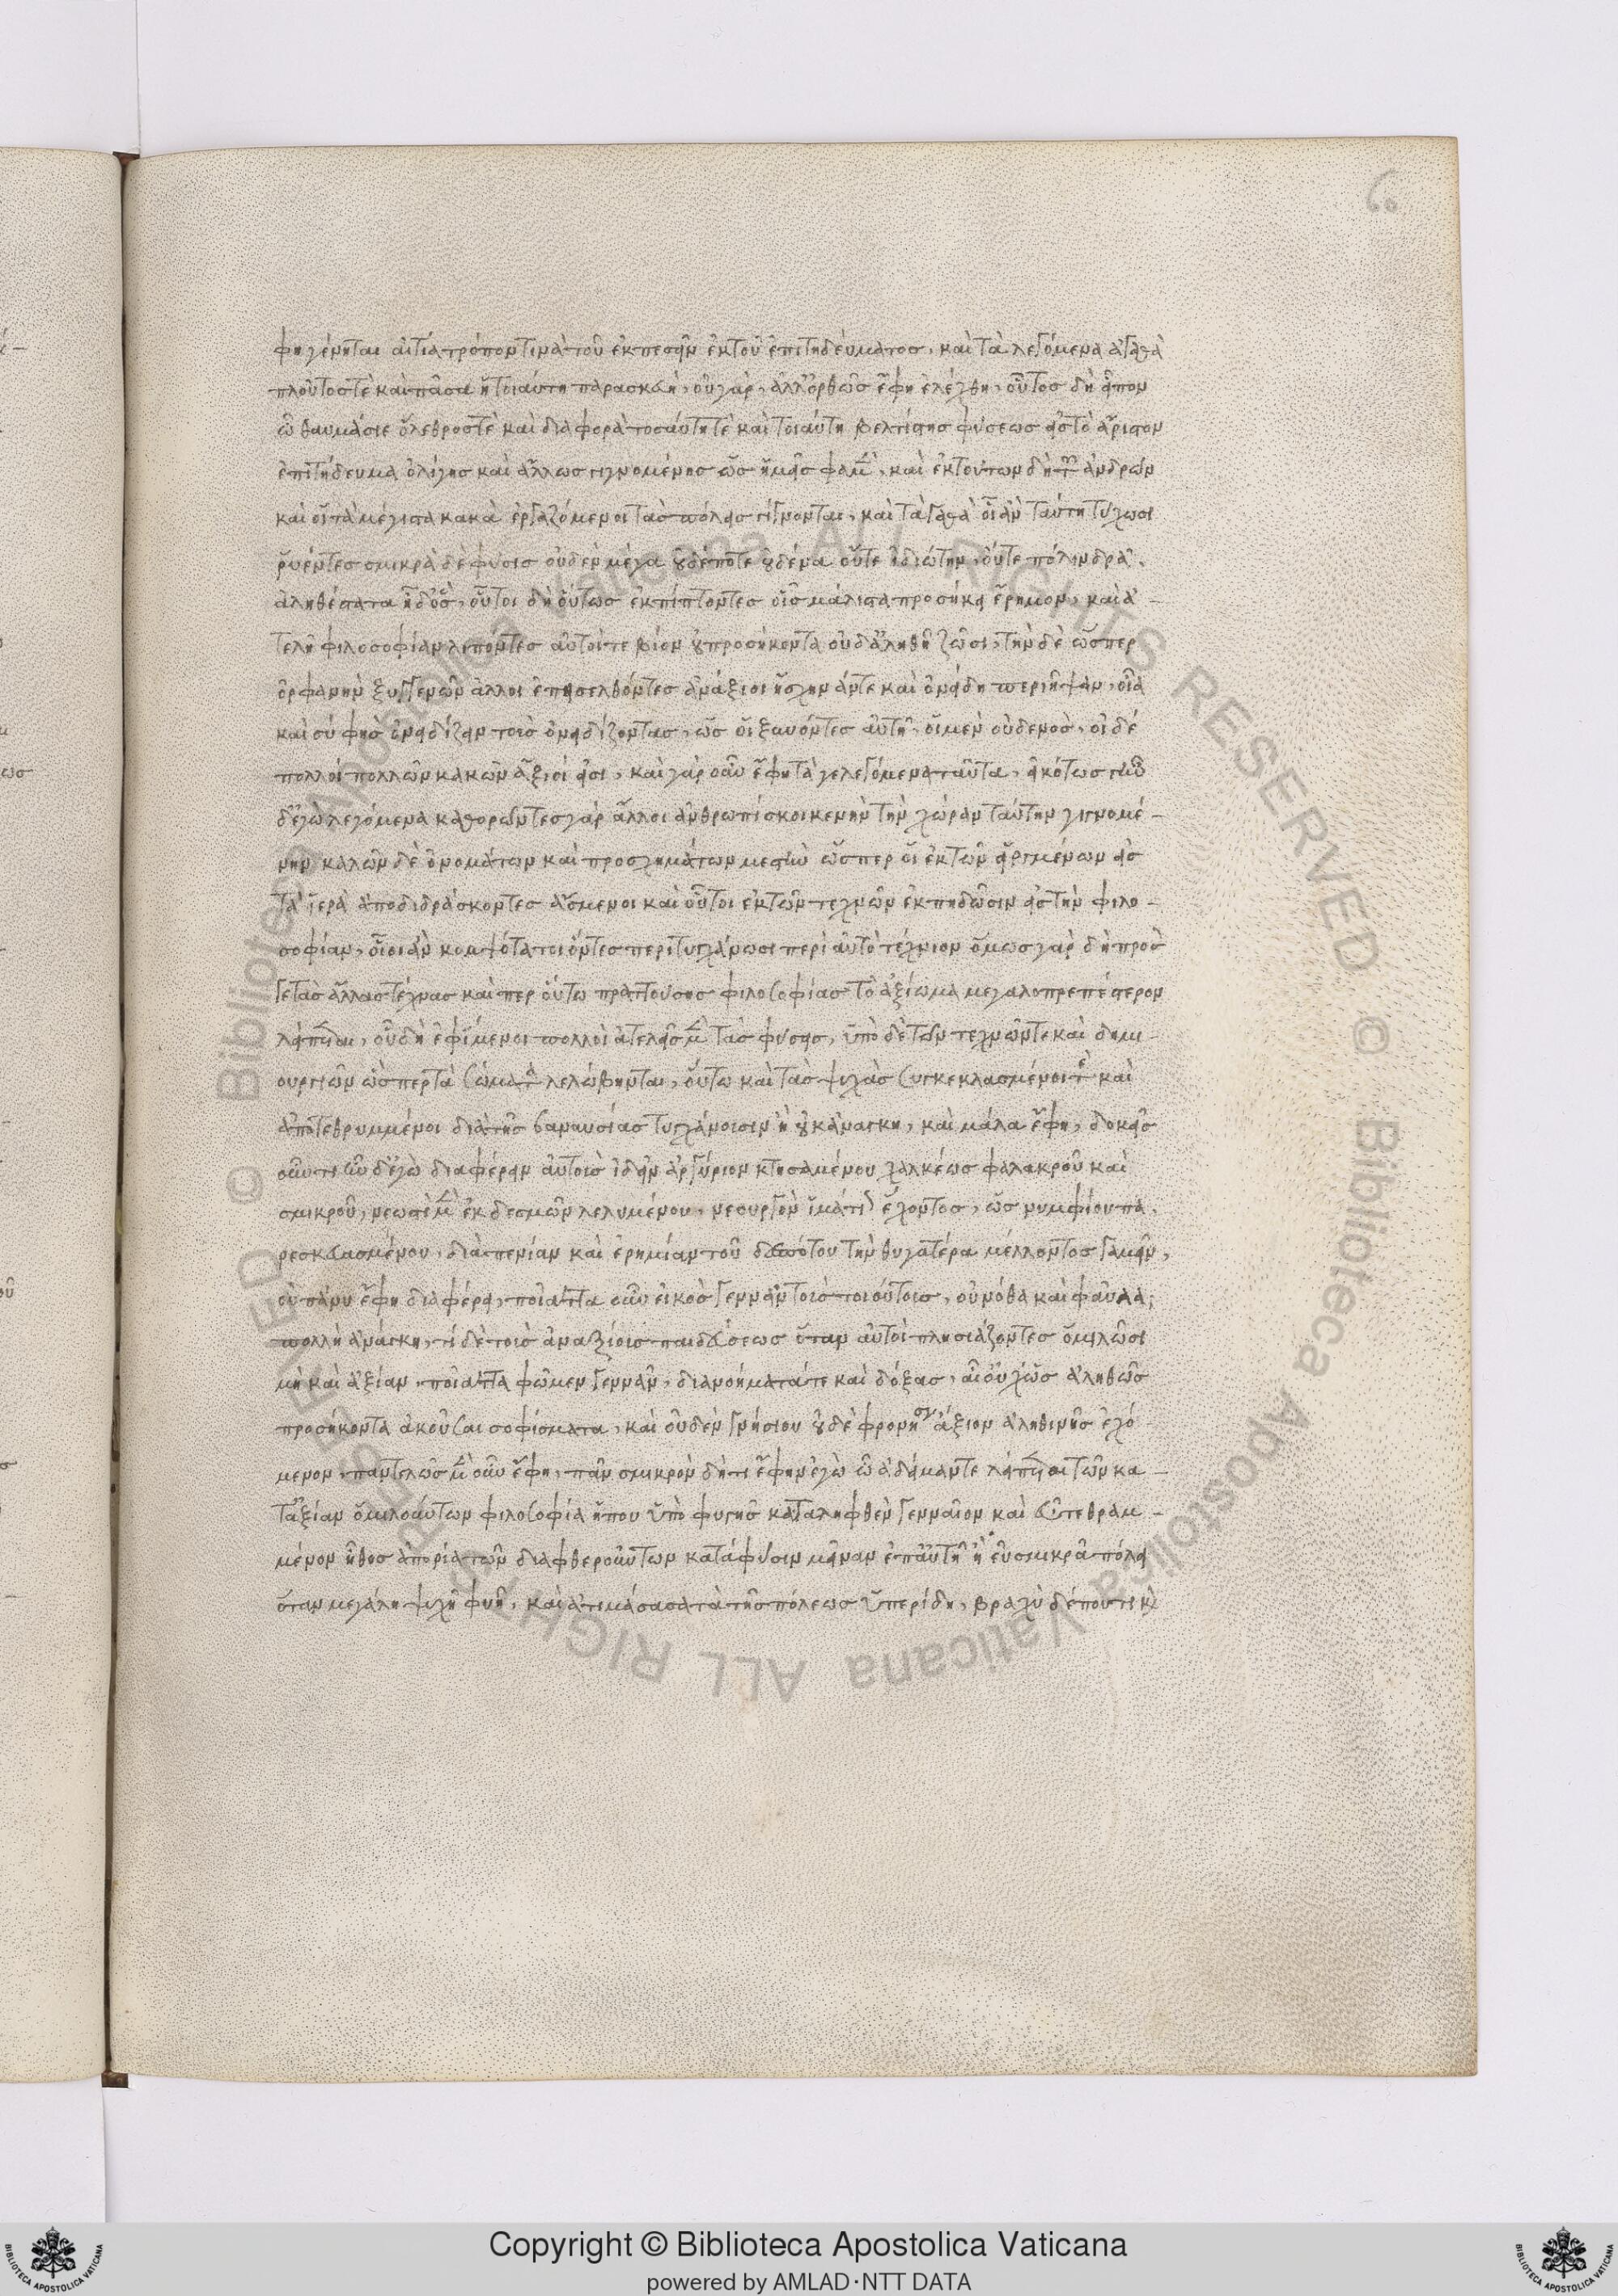 φῃ γένηται αἴτια τρόπον τινὰ τοῦ ἐκπεσεῖν ἐκ τοῦ ἐπιτηδεύματος, καὶ τὰ λεγόμενα ἀγαθὰ
πλοῦτος τὲ καὶ πᾶσα ἡ τοιαύτη παρασκευὴ, οὐ γὰρ, ἀλλ' ὀρθῶς ἔφη ἐλέχθη, οὗτος δὴ εἶπον
ὦ θαυμάσιε ὄλεθρος τὲ καὶ διαφορὰ τοσαύτη τὲ καὶ τοιαύτη βελτίστης φύσεως εἰς τὸ ἄριστον
ἐπιτήδευμα ὀλίγης καὶ ἄλλως γιγνομένης ὡς ἡμεῖς φαμὲν, καὶ ἐκ τούτων δὴ τῶν ἀνδρῶν
καὶ οἱ τὰ μέγιστα κακὰ ἐργαζόμενοι τὰς πόλεις γίγνονται, καὶ τἀγαθὰ οἳ ἂν ταύτῃ τύχωσι
ῥυέντες σμικρὰ δὲ φύσις οὐδὲν μέγα οὐδέποτε οὐδένα οὔτε ἰδιώτην, οὔτε πόλιν δρᾷ.
ἀληθέστατα ἦ δ' ὅς, οὗτοι δὴ οὕτως ἐκπίπτοντες οἷς μάλιστα προσήκει ἔρημον, καὶ ἀ-
τελῆ φιλοσοφίαν λιπόντες αὐτοί τε βίον οὐ προσήκοντα οὐδ' ἀληθῆ ζῶσι, τὴν δὲ ὥσπερ
ὀρφανὴν ξυγγενῶν ἄλλοι ἐπεισελθόντες ἀνάξιοι ᾔσχυνάν τε καὶ ὀνείδη περιῆψαν, οἷα
καὶ σύ φῂς ὀνειδίζειν τοὺς ὀνειδίζοντας, ὡς οἱ ξυνόντες αὐτῇ, οἱ μὲν οὐδενὸς, οἱ δέ
πολλοί πολλῶν κακῶν ἄξιοί εἰσι, καὶ γὰρ οὖν ἔφη τά γε λεγόμενα ταῦτα, εἰκότως γ' ἦν
δ' ἐγὼ λεγόμενα καθορῶντες γὰρ ἄλλοι ἀνθρωπίσκοι κενὴν τὴν χώραν ταύτην γιγνομέ-
νην καλῶν δὲ ὀνομάτων καὶ προσχημάτων μεστὴν ὥσπερ οἱ ἐκ τῶν εἱργμένων εἰς
τὰ ἱερὰ ἀποδιδράσκοντες ἄσμενοι καὶ οὗτοι ἐκ τῶν τεχνῶν ἐκπηδῶσιν εἰς τὴν φιλο-
σοφίαν, οἳ οἱ ἂν κομψότατοι ὄντες περιτυγχάνωσι περὶ αὐτὸ τέχνιον ὅμως γὰρ δὴ πρός
γε τὰς ἄλλας τέχνας καὶ περ οὕτω πραττούσης φιλοσοφίας τὸ ἀξίωμα μεγαλοπρεπέστερον
λείπεται, οὗ δὴ ἐφιέμενοι πολλοὶ ἀτελεῖς μὲν τὰς φύσεις, ὑπὸ δὲ τῶν τεχνῶν τε καὶ δημι-
ουργιῶν ὥσπερ τὰ σώματα λελώβηνται, οὕτω καὶ τὰς ψυχὰς συγκεκλασμένοι τὲ καὶ
ἀποτεθρυμμένοι διὰ τῆς βαναυσίας τυγχάνουσιν ἢ οὐκ ἀνάγκη, καὶ μάλα ἔφη, δοκεῖς
οὖν τι ἦν δ' ἐγὼ διαφέρειν αὐτοὺς ἰδεῖν ἀργύριον κτησαμένου χαλκέως φαλακροῦ καὶ
σμικροῦ, νεωστὶ μὲν ἐκ δεσμῶν λελυμένου, νεουργὸν ἱμάτιον ἔχοντος, ὡς νυμφίου πα-
ρεσκευασμένου, διὰ πενίαν καὶ ἐρημίαν τοῦ δεσπότου τὴν θυγατέρα μέλλοντος γαμεῖν,
οὐ πάνυ ἔφη διαφέρει, ποῖ' ἄττα οὖν εἰκὸς γεννᾶν τοὺς τοιούτους, οὐ νόθα καὶ φαῦλα;
πολλὴ ἀνάγκη, τί δὲ τοὺς ἀναξίους παιδεύσεως ὅταν αὐτοὶ πλησιάζοντες ὁμιλῶσι
μὴ καὶ ἀξίαν, ποῖ' ἄττα φῶμεν γεννᾶν, διανοήματά τε καὶ δόξας, ἆρ' οὐχ ὡς ἀληθῶς
προσήκοντα ἀκοῦσαι σοφίσματα, καὶ οὐδὲν γνήσιον οὐδὲ φρονήσεως ἄξιον ἀληθινῆς ἐχό-
μενον, παντελῶς μὲν οὖν ἔφη, πᾶν σμικρὸν δή τι ἔφην ἐγὼ ὦ ἀδείμαντε λείπεται τῶν κα-
τ' ἀξίαν ὁμιλούντων φιλοσοφίᾳ ἤ που ὑπὸ φυγῆς καταληφθὲν γενναῖον καὶ εὖ τεθραμ-
μένον ἦθος ἀπορίᾳ τῶν διαφθερούντων κατὰ φύσιν μεῖναν ἐπ' αὐτῇ ἢ ἐν σμικρᾷ πόλει
ὅταν μεγάλη ψυχὴ φυῇ, καὶ ἀτιμάσασα τὰ τῆς πόλεως ὑπερίδῃ, βραχὺ δέ που τι καὶ
Copyright © Biblioteca Apostolica Vaticana
powered by AMLAD·NTT DATA